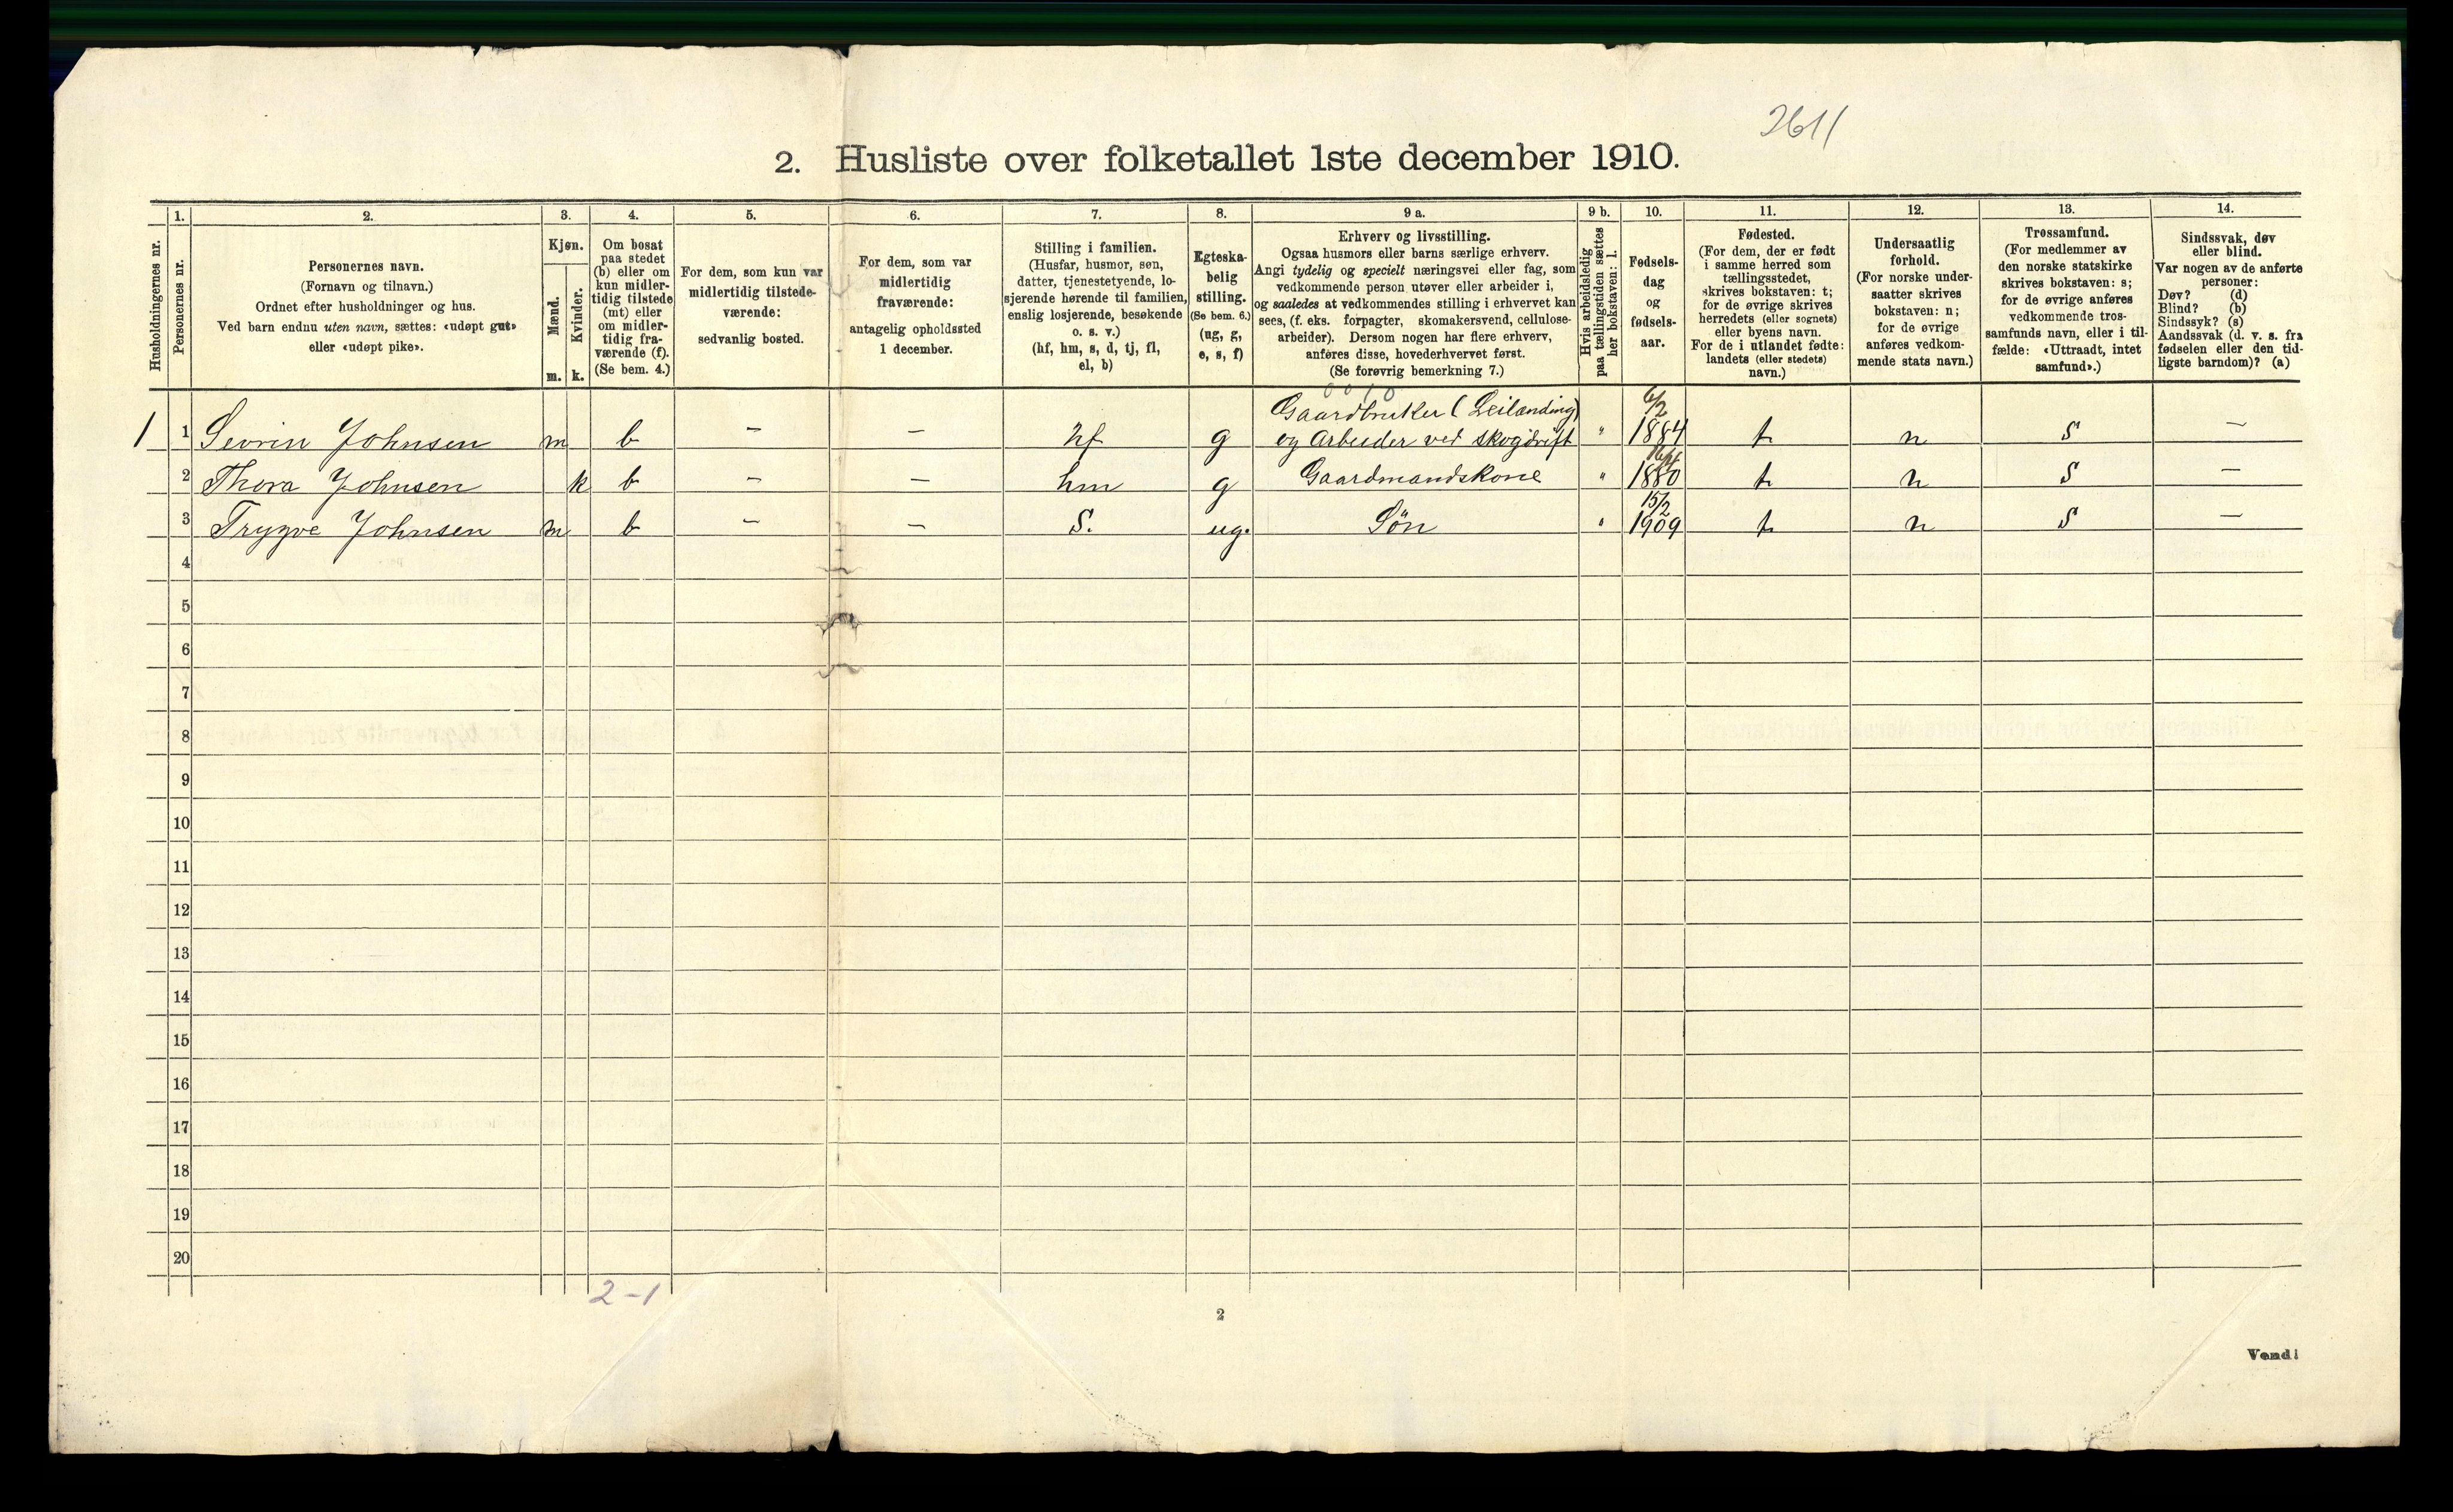 2611
2. Husliste over folketallet 1ste december 1910.
1. 2. 3. 4. 5. 6. 7. 8. 9 a. 9 b. 10. 11. 12. 13. 14.
Husholdningernes nr.
Personernes nr.
Personernes navn.
(Fornavn og tilnavn.)
Ordnet efter husholdninger og hus.
Ved barn endnu uten navn, sættes: «udøpt gut»
eller «udøpt pike».
Kjøn.
Mænd.
Kvinder.
m. k.
Om bosat
paa stedet
(b) eller om
kun midler-
tidig tilstede
(mt) eller
om midler-
tidig fra-
værende (f).
(Se bem. 4.)
For dem, som kun var
midlertidig tilstede-
værende:
sedvanlig bosted.
For dem, som var
midlertidig
fraværende:
antagelig opholdssted
1 december.
Stilling i familien.
(Husfar, husmor, søn,
datter, tjenestetyende, lo-
sjerende hørende til familien,
enslig losjerende, besøkende
o. s. v.)
(hf, hm, s, d, tj, fl,
el, b)
Egteska-
belig
stilling.
(Se bem. 6.)
(ug, g,
e, s, f)
Erhverv og livsstilling.
Ogsaa husmors eller barns særlige erhverv.
Angi tydelig og specielt næringsvei eller fag, som
vedkommende person utøver eller arbeider i,
og saaledes at vedkommendes stilling i erhvervet kan
sees, (f. eks. forpagter, skomakersvend, cellulose-
arbeider). Dersom nogen har flere erhverv,
anføres disse, hovederhvervet først.
(Se forøvrig bemerkning 7.)
Hvis arbeidsledig
paa tællingstiden sættes
her bokstaven: l.
Fødsels-
dag
og
fødsels-
aar.
Fødested.
(For dem, der er født
i samme herred som
tællingsstedet,
skrives bokstaven: t;
for de øvrige skrives
herredets (eller sognets)
eller byens navn.
For de i utlandet fødte:
landets (eller stedets)
navn.)
Undersaatlig
forhold.
(For norske under-
saatter skrives
bokstaven: n;
for de øvrige
anføres vedkom-
mende stats navn.)
Trossamfund.
(For medlemmer av
den norske statskirke
skrives bokstaven: s;
for de øvrige anføres
vedkommende tros-
samfunds navn, eller i til-
fælde: «Uttraadt, intet
samfund».)
Sindssvak, døv
eller blind.
Var nogen av de anførte
personer:
Døv? (d)
Blind? (b)
Sindssyk? (s)
Aandssvak (d. v. s. fra
fødselen eller den tid-
ligste barndom)? (a)
0010
Gaardbruker (Leilænding) 6/2
1 1 Sevrin Johnsen m b - - hf g og Arbeider ved skogdrift " 1884 t n S -
2 Thora Johnsen k b - - hm g Gaardmandskone " 1880 t n S -
15/2
3 Trygve Johnsen m b - - S. ug. Søn " 1909 t n S -
4
5
6
7
8
9
10
11
12
13
14
15
16
17
18
19
20
2-1
2
Vend!